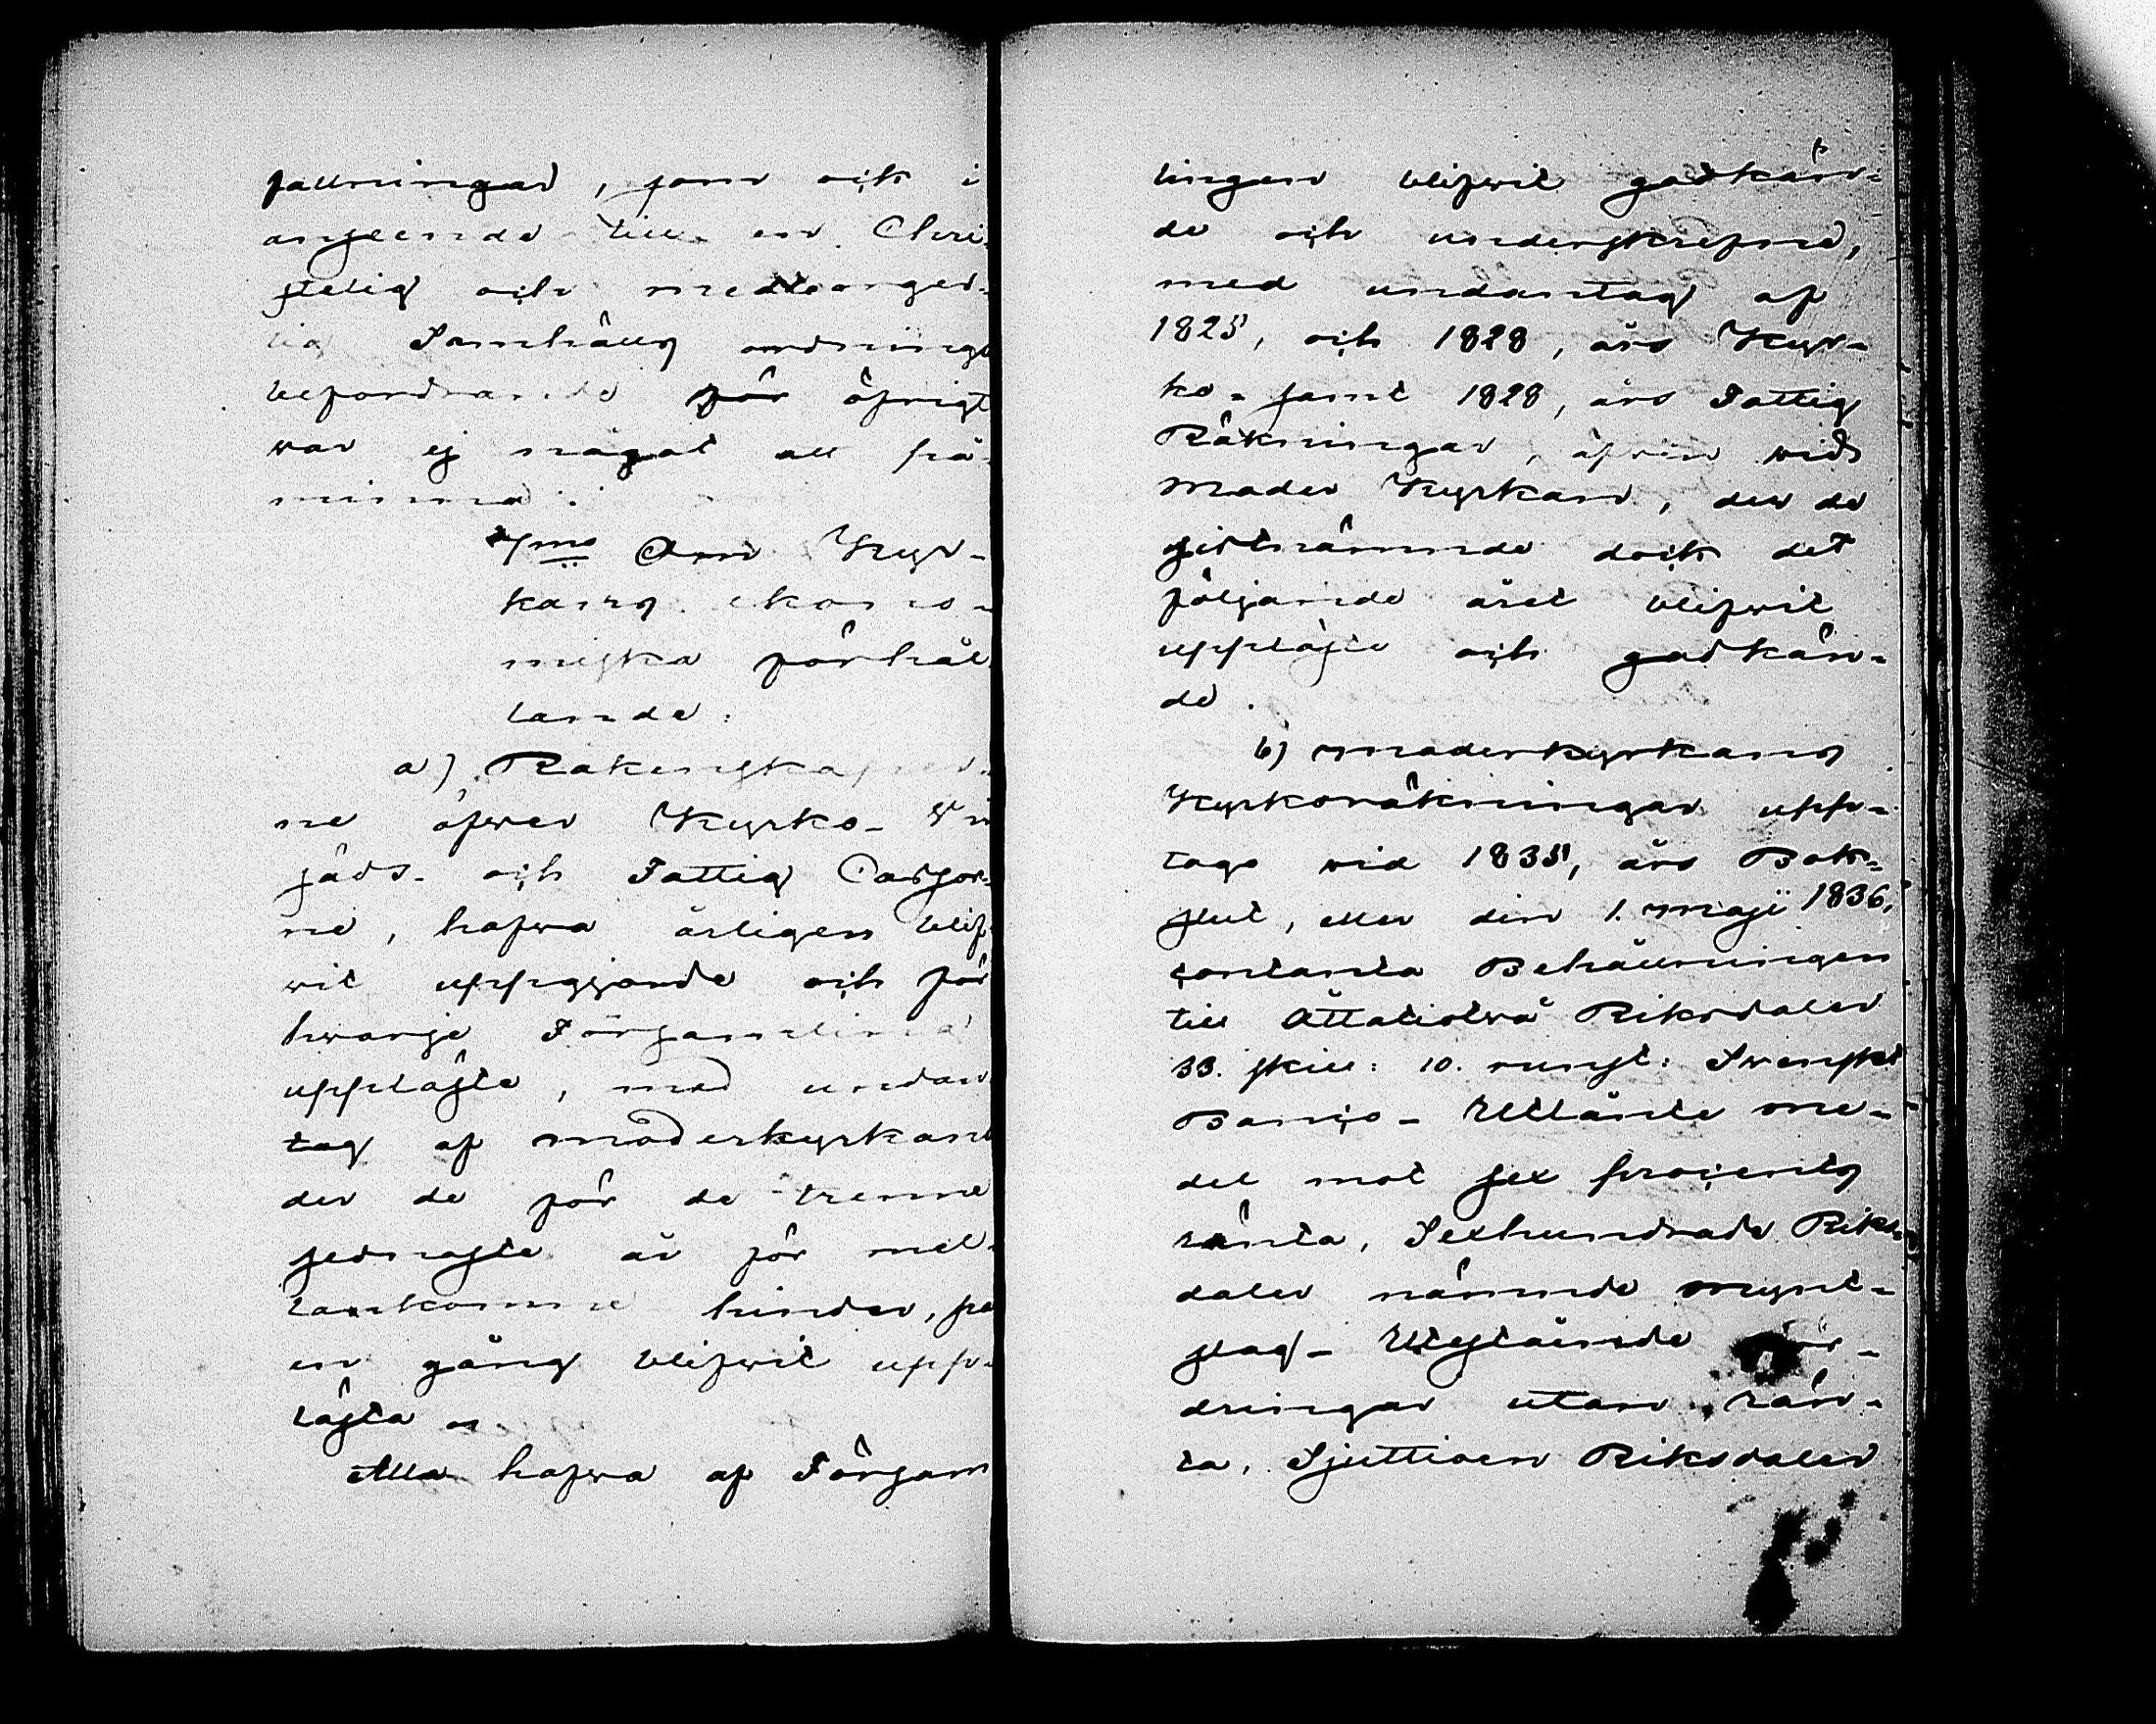 fattningar, som ock i
anseende till en Chri-
stelig och medborger-
lig Samhälls ordnings
befordrande för öfrigt
war ej något att på-
minna.
7mo Om Kyr-
kans ekono-
miska förhål-
lande.
a) Räkenskaper-
ne öfwer Kyrko- Win
säds- och Fattig Cassor-
ne, hafwa årligen blif-
wit uppgjorde och för
hwarje Församling
upplåste, med undan
tag af moderkyrkan
der de för de trenne
sednaste år för mel-
lankomne hinder, på
en gång blifwit upp-
läste.
Alla hafwa af Försam
lingen blifwit godkän-
de och underskrefne,
med undantag af
1825, och 1828, års Kyr-
ko- samt 1828, års Fattig
Räkningar, äfwen wid
Moder Kyrkan, der de
sistnämnde dock det
följande året blifwit
uppläste och godkän-
de.
b) moderkyrkans
Kyrkoräkningar upp-
togo wid 1835, års Bok-
slut, eller den 1. Maji 1836,
contanta Behållningen
till Åttatiotwå Riksdaler
33. skill: 10. runst: Swenskt
Banco- Utlånte me-
del mot sex procents
ränta, Sexhundrade Riks-
daler nämnde mynt-
slag- Utestående för-
dringar utan rän-
ta, Sjuttioen Riksdaler